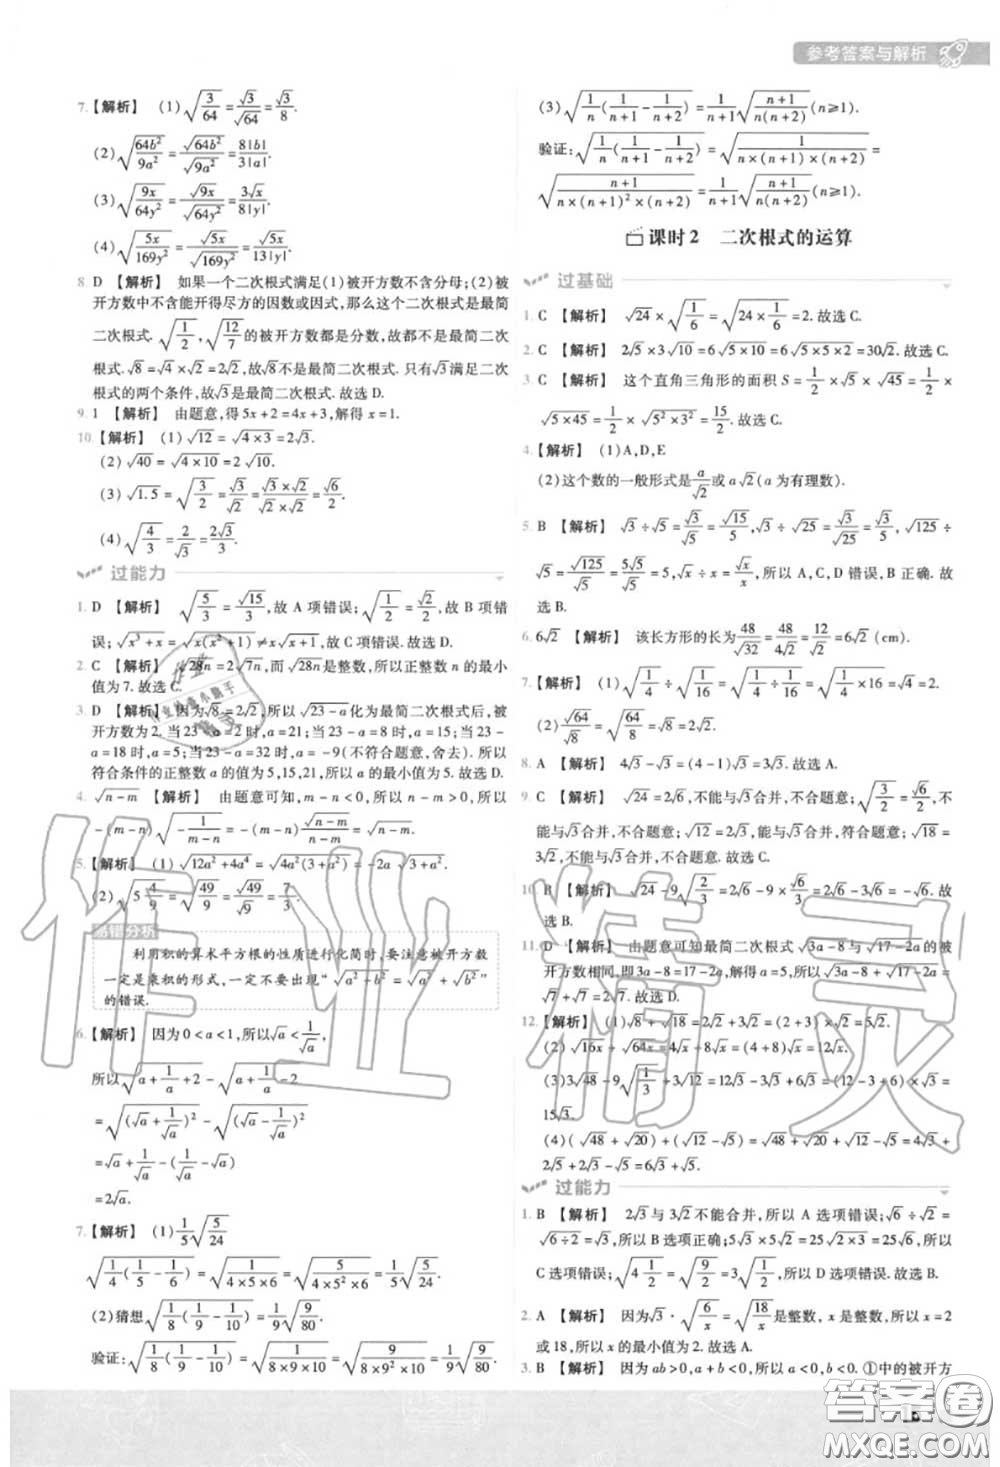 参考答案与解析
7.【解析】 (1)√(3/64)=√3/√64=√3/8.
(2)√(64b²/9a²)=√(64b²)/√(9a²)=8|b|/3|a|.
(3)√(9x/64y²)=√(9x)/√(64y²)=3√x/8|y|.
(4)√(5x/169y²)=√(5x)/√(169y²)=√(5x)/13|y|.
8 D 【解析】 如果一个二次根式满足(1)被开方数不含分母;(2)被
开方数中不含能开得尽方的因数或因式,那么这个二次根式是最简
二次根式.√(1/2),√(12/7)的被开方数都是分数,故都不是最简二次根
式.√8=√4×√2=2√2,故√8不是最简二次根式.只有√3满足二次
根式的两个条件,故√3是最简二次根式.故选 D.
9. 1 【解析】 由题意,得5x+2=4x+3,解得 x=1.
10.【解析】 (1)√12=√(4×3)=2√3.
(2)√40=√(4×10)=2√10.
(3)√1.5=√(3/2)=√3/√2=(√3×√2)/(√2×√2)=√6/2.
(4)√(4/3)=2/√3=2√3/3.
过能力
1. D 【解析】 √(5/3)=√15/3,故 A 项错误;√(1/2)=√2/2,故 B 项错
误;√(x³+x)=√(x(x²+1))≠x√(x+1),故C项错误.故选 D.
2. C 【解析】 √28n=2√7n,而√28n是整数,所以正整数 n 的最小
值为 7.故选 C.
3. D 【解析】 因为√8=2√2,所以√(23-a)化为最简二次根式后,被
开方数为 2.当 23-a=2 时,a=21;当 23-a=8 时,a=15;当 23-a
=18 时,a=5;当 23-a=32 时,a=-9(不符合题意,舍去).所以
符合条件的正整数 a 的值为 5,15,21,所以 a 的最小值为 5.故选 D.
4. √(n-m) 【解析】 由题意可知,m-n<0,所以 n-m>0,所以
-(m-n)√(-1/(m-n))=-(m-n)√(n-m)/(n-m)=√(n-m).
5.【解析】 (1)√(12a²+4a⁴)=√(4a²(3+a²))=-2a√(3+a²).
(2)√(5 4/9)=√(49/9)=√49/√9=7/3.
易错分析
利用积的算术平方根的性质进行化简时,要注意被开方数
一定是乘积的形式,一定不要出现“√(a²+b²)=√a²+√b²”
的错误.
6.【解析】 因为 0<a<1,所以√a<1/√a,
所以√(a+1/a+2)-√(a+1/a-2)
=√((√a+1/√a)²)-√((√a-1/√a)²)
=√a+1/√a-(1/√a-√a)
=2√a.
7.【解析】 (1)1/5√(5/24)
√(1/4(1/5-1/6))=√(1/(4×5×6))=√(5/(4×5²×6))=1/5√(5/24).
(2)猜想√(1/8(1/9-1/10))=1/9√(9/80)
验证:√(1/8(1/9-1/10))=√(1/(8×9×10))=√(9/(8×9²×10))=1/9√(9/80).
(3)√(1/n(1/(n+1)-1/(n+2)))=1/(n+1)√((n+1)/(n(n+2)))(n≥1).
验证:√(1/n(1/(n+1)-1/(n+2)))=√(1/(n×(n+1)×(n+2)))=
√((n+1)/(n×(n+1)²×(n+2)))=1/(n+1)√((n+1)/(n(n+2)))(n≥1).
课时 2 二次根式的运算
过基础
1. C 【解析】 √24×√(1/6)=√(24×1/6)=2.故选 C.
2. C 【解析】 2√5×3√10=6√(5×10)=6√(5×5×2)=30√2.故选 C.
3. C 【解析】 这个直角三角形的面积 S=1/2×√5×√45=1/2×
√(5×45)=1/2×√(5²×3²)=15/2.故选 C.
4.【解析】 (1)A,D,E
(2)这个数的一般形式是a/√2或 a√2(a 为有理数).
5. B 【解析】 √3÷√5=√3/√5=√15/5,√3÷√25=√3/√25=√3/5,√125÷
√5=√125/√5=5√5/√5=5,√x÷x=√x/x.所以 A,C,D 错误,B 正确.故
选 B.
6. 6√2 【解析】 该长方形的长为48/√32=48/4√2=12/√2=6√2(cm).
7.【解析】 (1)√(1/4)÷√(1/16)=√(1/4÷1/16)=√(1/4×16)=√4=2.
(2)√64/√8=√(64/8)=√8=2√2.
8. A 【解析】 4√3-√3=(4-1)√3=3√3.故选 A.
9. C 【解析】 √24=2√6,不能与√3合并,不合题意;√(3/2)=√6/2,不
能与√3合并,不合题意;√12=2√3,能与√3合并,符合题意;√18=
3√2,不能与√3合并,不合题意.故选 C.
10. B 【解析】 √24-9√(2/3)=2√6-9×√6/3=2√6-3√6=-√6.故
选 B.
11. D 【解析】 由题意可知最简二次根式√(3a-8)与√(17-2a)的被
开方数相同,即3a-8=17-2a,解得 a=5,所以√(3a-8)+√(17-2a)=
√7+√7=2√7.故选 D.
12.【解析】 (1)√8+√18=2√2+3√2=(2+3)×√2=5√2.
(2)√16x+√64x=4√x+8√x=(4+8)√x=12√x.
(3)3√48-9√(1/3)+3√12=12√3-3√3+6√3=(12-3+6)×√3=
15√3.
(4)(√48+√20)+(√12-√5)=√48+√20+√12-√5=4√3+
2√5+2√3-√5=6√3+√5.
过能力
1. B 【解析】 2√3与 3√2不能合并,所以 A 选项错误;√6÷√2=
√(6÷2)=√3,所以 B 选项正确;5√3×5√2=25√(3×2)=25√6,所以
C选项错误;√(4 1/2)=√(9/2)=3/√2=3√2/2,所以 D 选项错误.故选 B.
2. A 【解析】 因为√3·√(6/x)=√(18/x)是整数,x 是整数,所以 x=2
或 18,所以 x 的最小值为 2.故选 A.
3. B 【解析】 因为 ab>0,a+b<0,所以 a<0,b<0.①中的被开方
作业精灵
答案圈
MXQE.COM